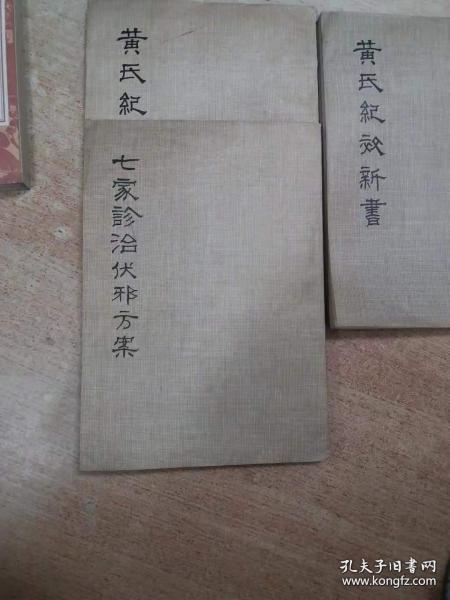 黄氏紀
七家診治伏邪方案
黄氏紀效新書
孔夫子旧书网
www.kongfz.com